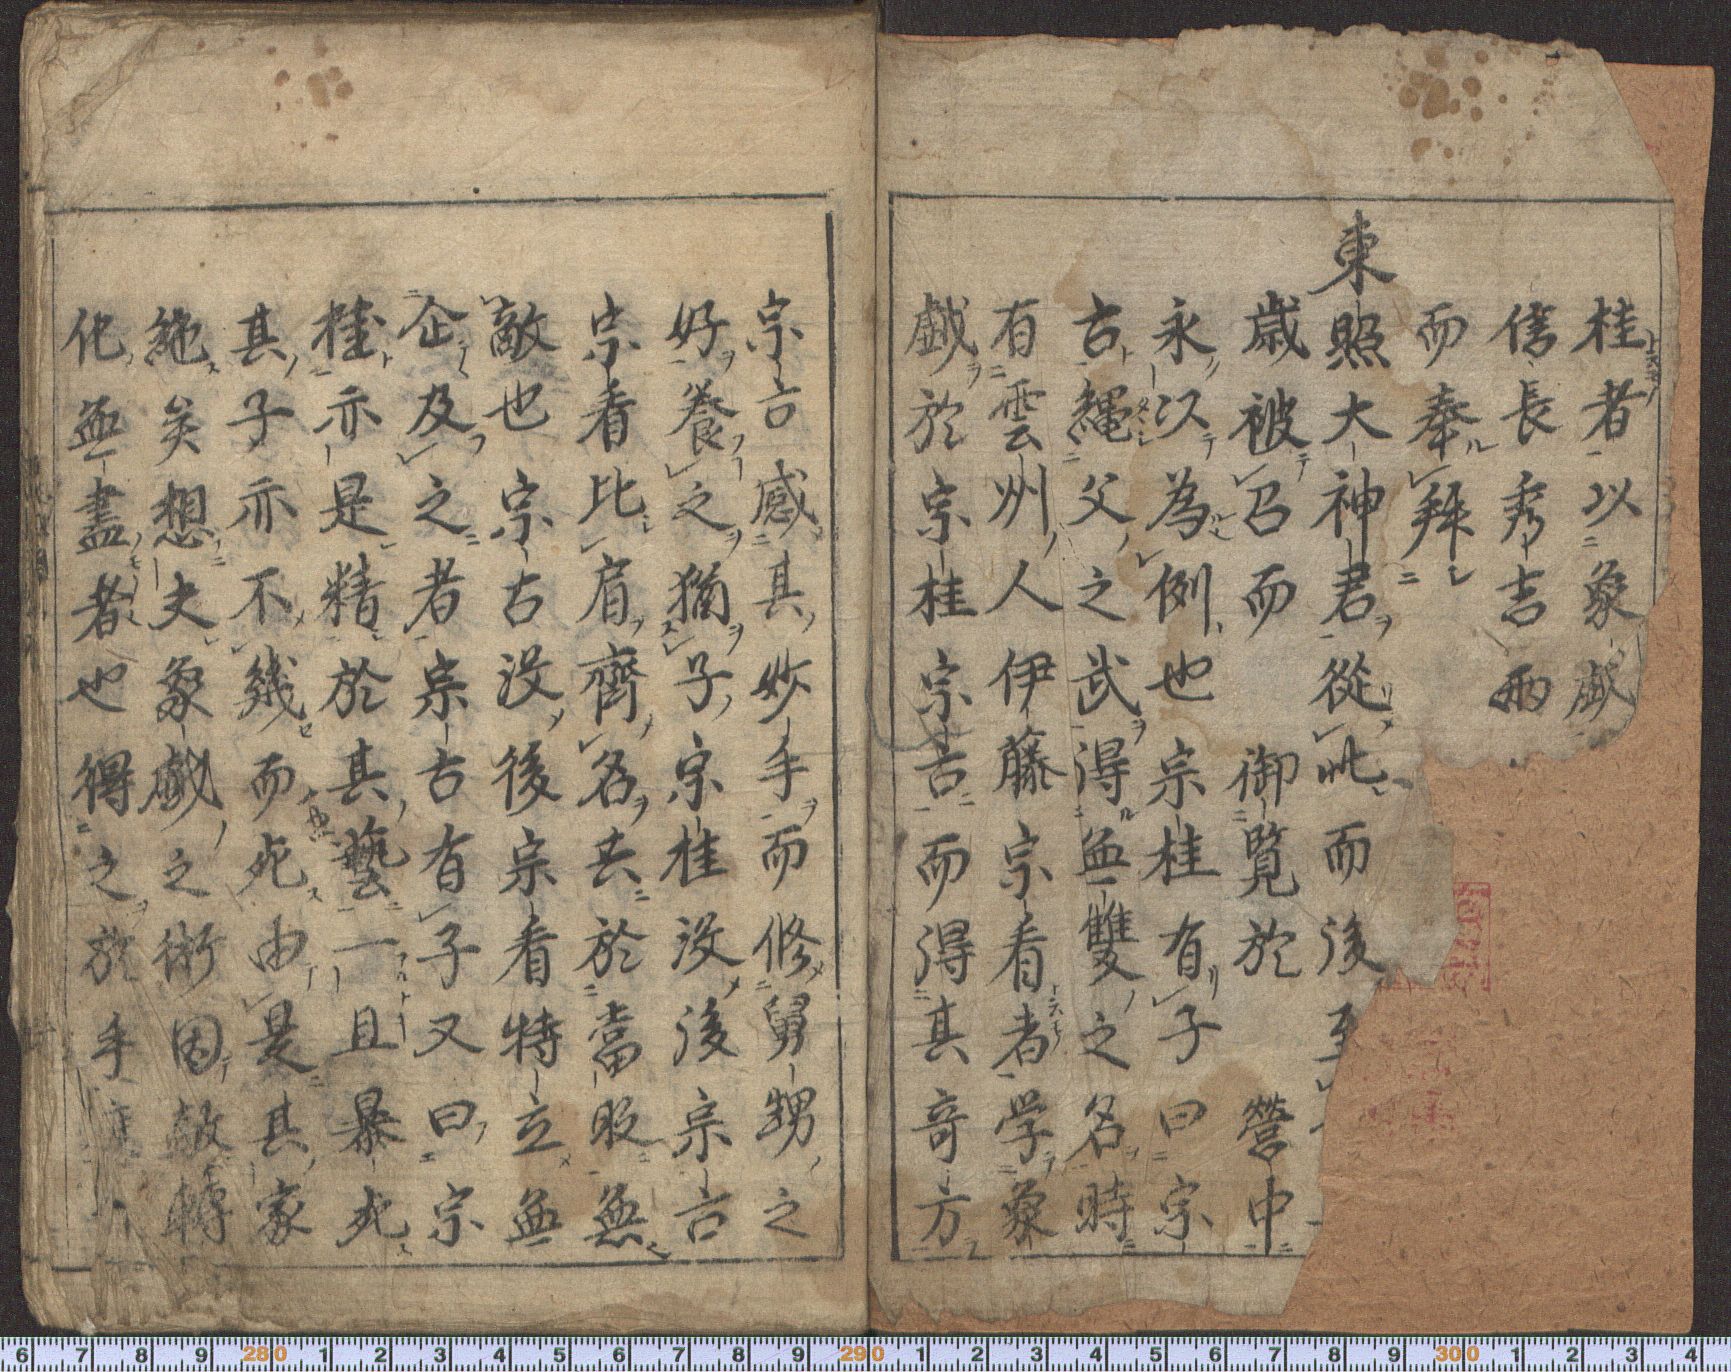 桂者以象戯
信長秀吉両
而奉拜
東照大神君從此而後至
歳被召而　御覧於　營中
永以為例也宗桂有子曰宗
古縄父之武得無雙之名時
有雲州人伊藤宗看者学象
戯於宗桂宗古而得其奇方
宗古感其妙手而修舅甥之
好養之猶子宗桂没後宗古
宗看比肩齊名共於當時無
敵也宗古没後宗看特立無
企及之者宗古有子又曰宗
桂亦是精於其藝一旦暴死
其子亦不幾而死由是其家
絶矣想夫象戯之術因敵轉
化無盡者也得之於手應